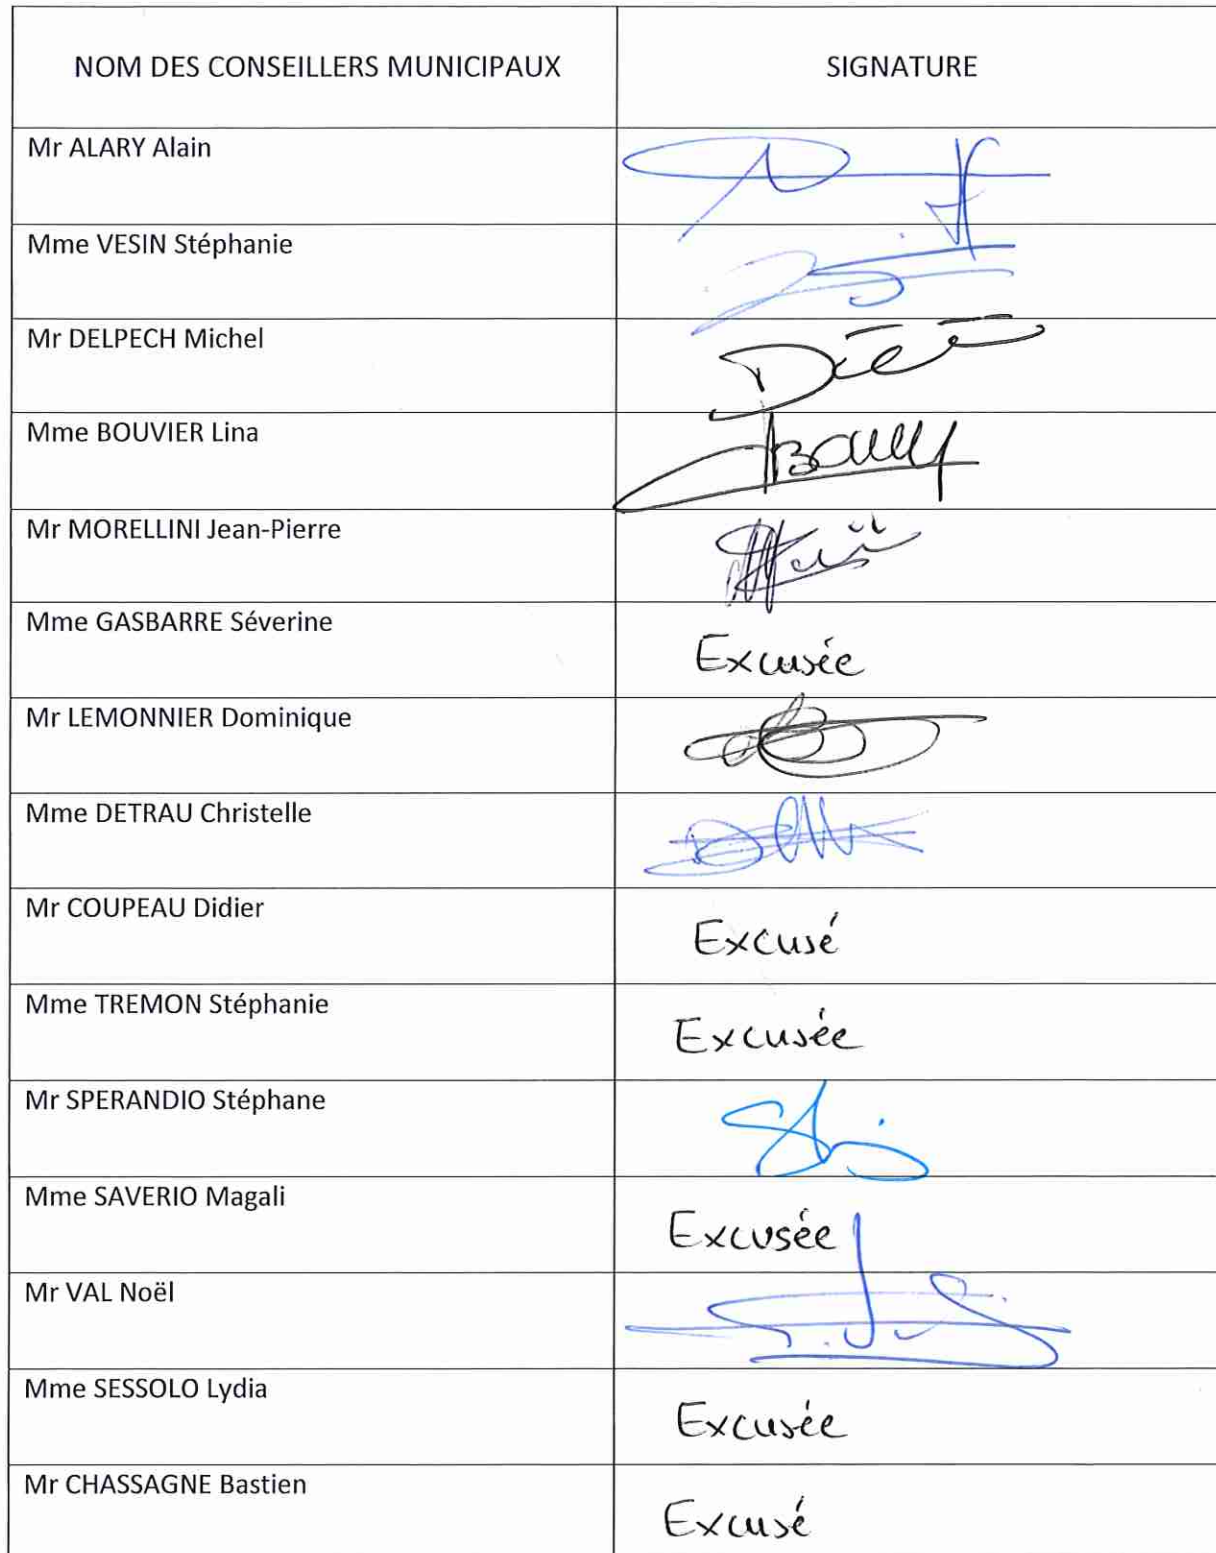 NOM DES CONSEILLERS MUNICIPAUX SIGNATURE
Mr ALARY Alain
Mme VESIN Stéphanie
Mr DELPECH Michel
Mme BOUVIER Lina
Mr MORELLINI Jean-Pierre
Mme GASBARRE Séverine
Excusée
Mr LEMONNIER Dominique
Mme DETRAU Christelle
Mr COUPEAU Didier
Excusé
Mme TREMON Stéphanie
Excusée
Mr SPERANDIO Stéphane
Mme SAVERIO Magali
Excusée
Mr VAL Noël
Mme SESSOLO Lydia
Excusée
Mr CHASSAGNE Bastien
Excusé